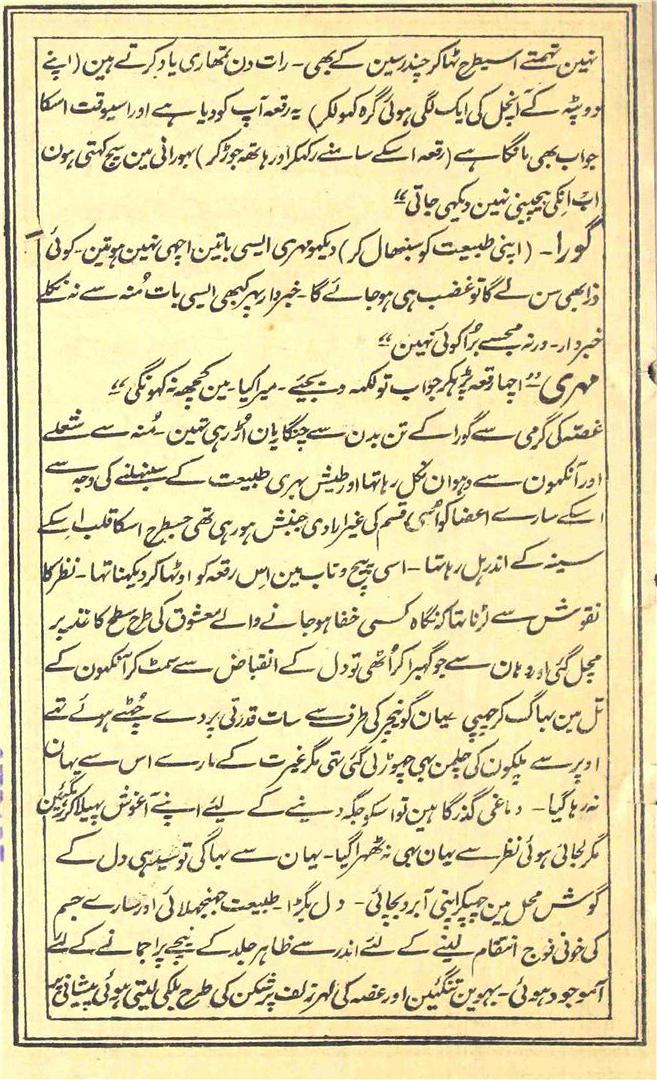 نہین تہمتے اسیطرح ٹھاکر چندرسین کے بھی۔ رات دن تمھاری یاد کرتے ہین (اپنے
دوپٹہ کے آنچل کی ایک لگی ہوئی گرہ کہولکر) یہ رقعہ آپ کو دیا ہے اور اسیوقت اسکا
جواب بھی مانگا ہے (رقعہ اسکے سامنے رکہکر اور ہاتھ جوڑکر) بہورانی مین سچ کہتی ہون
اب انکی بیچینی نہین دیکہی جاتی“
گورا۔ (اپنی طبیعت کو سنبھال کر) دیکہو مہری ایسی باتین اچھی نہین ہوتین۔ کوئی
ذرا بھی سن لے گا تو غضب ہی ہو جائے گا۔ خبردار پہر کبھی ایسی بات مُنہ سے نہ نکلے
خبردار۔ ورنہ مجسے بُرا کوئی نہین“
مہری ”اچھا رقعہ پڑہکر جواب تو لکہہ دیجیے۔ میرا کیا۔ مین کچھہ نہ کہونگی“
غصّہ کی گرمی سے گورا کے تن بدن سے چنگاریان اُڑ رہی تہین۔ مُنہ سے شعلے
اور آنکہون سے دہوان نکل رہا تھا اور طیش بہری طبیعت کے سنبہلنے کی وجہ سے
اسکے سارے اعضا کو اسی قسم کی غیر ارادی جنبش ہو رہی تھی جسطرح اسکا قلب اسکے
سینہ کے اندر ہل رہا تھا۔ اسی پیچ و تاب مین اس رقعہ کو اوٹھا کر دیکھنا تھا۔ نظر کا
نقوش سے لڑنا تھا کہ نگاہ کسی خفا ہو جانے والے معشوق کی طرح سطح کاغذ پر
مچل گئی اور وہان سے جو گھبرا کر اُٹھی تو دل کے انقباض سے سمٹ کر آنکہون کے
تل مین بہاگ کر چھپی یہان گو نیچر کی طرف سے سات قدرتی پردے چُھٹے ہوئے تھے
اوپر سے پلکون کی چلمن بھی چھوڑ لی گئی تھی مگر غیرت کے مارے اس سے یہان
نہ رہا گیا۔ دماغی گذرگاہین تو اسکو جگہ دینے کے لیئے اپنے آغوش پھیلا کر
مگر لجائی ہوئی نظر سے یہان بھی نہ ٹھہرا گیا۔ یہان سے بھاگی تو سیدہی دل کے
گوش محل مین چھپکر اپنی آبرو بچائی۔ دل بگڑا۔ طبیعت جھنجھلائی اور سارے جسم
کی خونی فوج انتقام لینے کے لئے اندر سے ظاہر جلد کے نیچے پرا جمانے کے لئے
آموجود ہوئی۔ بہوین تنگئین اور غصہ کی لہر زلف پر شکن کی طرح ہلکی لیتی ہوئی پیشانی پر